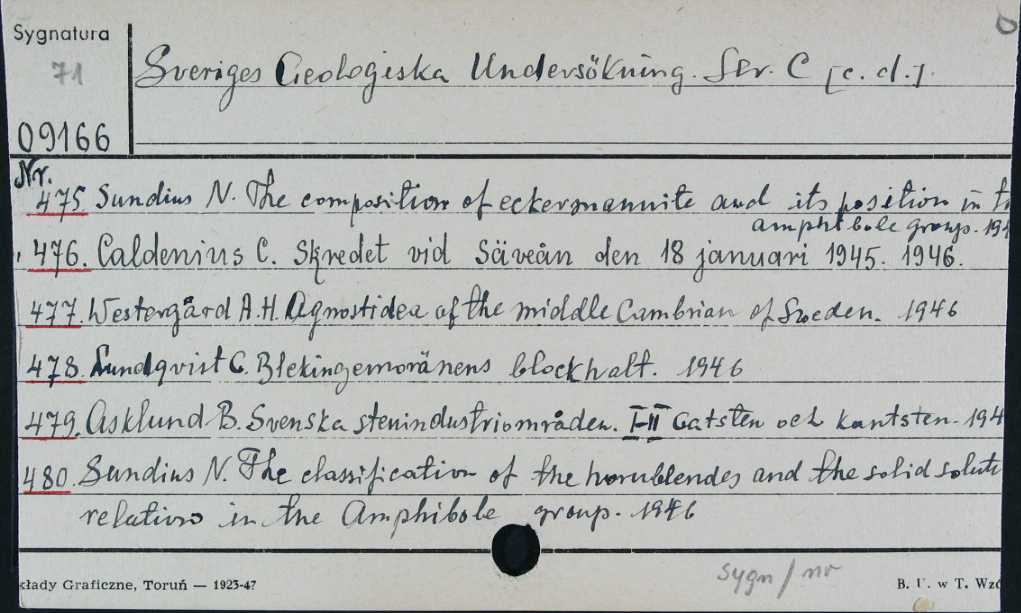 Sygnatura
71
09166
Sveriges Geologiska Undersökning. Ser. C [c. d.].
Nr.
475. Sundius N. The composition of eckermannite and its position in
amphibole group. 194
476. Caldenius C. Skredet vid Säveån den 18 januari 1945. 1946.
477. Westergård A.H. Agnostidea of the middle Cambrian of Sweden. 1946
478. Lundqvist G. Blekingemoränens blockhalt. 1946
479. Asklund B. Svenska stenindustriområden. I-II Gatsten och kantsten. 194
480. Sundius N. The classification of the hornblendes and the solid soluti
relations in the Amphibole group. 1946
sygn/nr
kłady Graficzne, Toruń — 1923-47
B. U. w T. Wzó